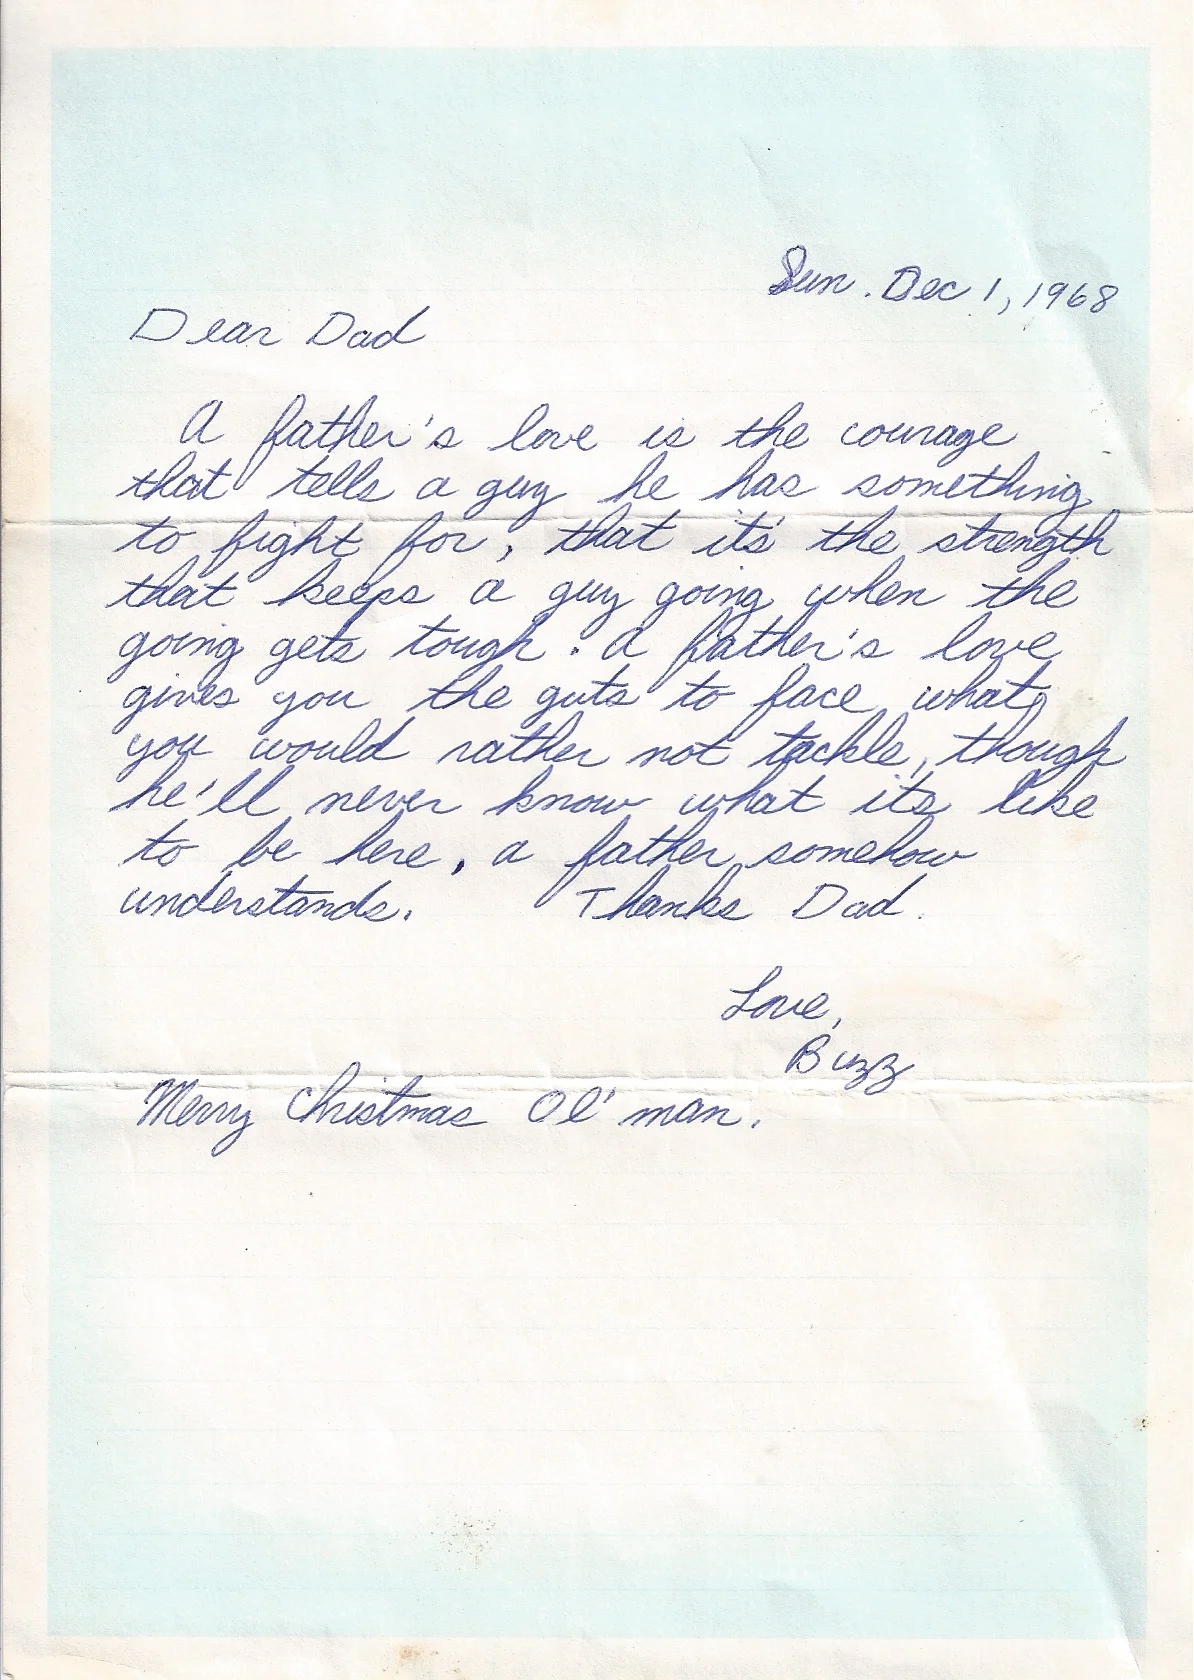 Sun. Dec 1, 1968
Dear Dad
A father's love is the courage
that tells a guy he has something
to fight for, that it's the strength
that keeps a guy going when the
going gets tough. A father's love
gives you the guts to face what
you would rather not tackle, though
he'll never know what its like
to be here, a father somehow
understands. Thanks Dad.
Love,
Buzz
Merry Christmas Ol' man.